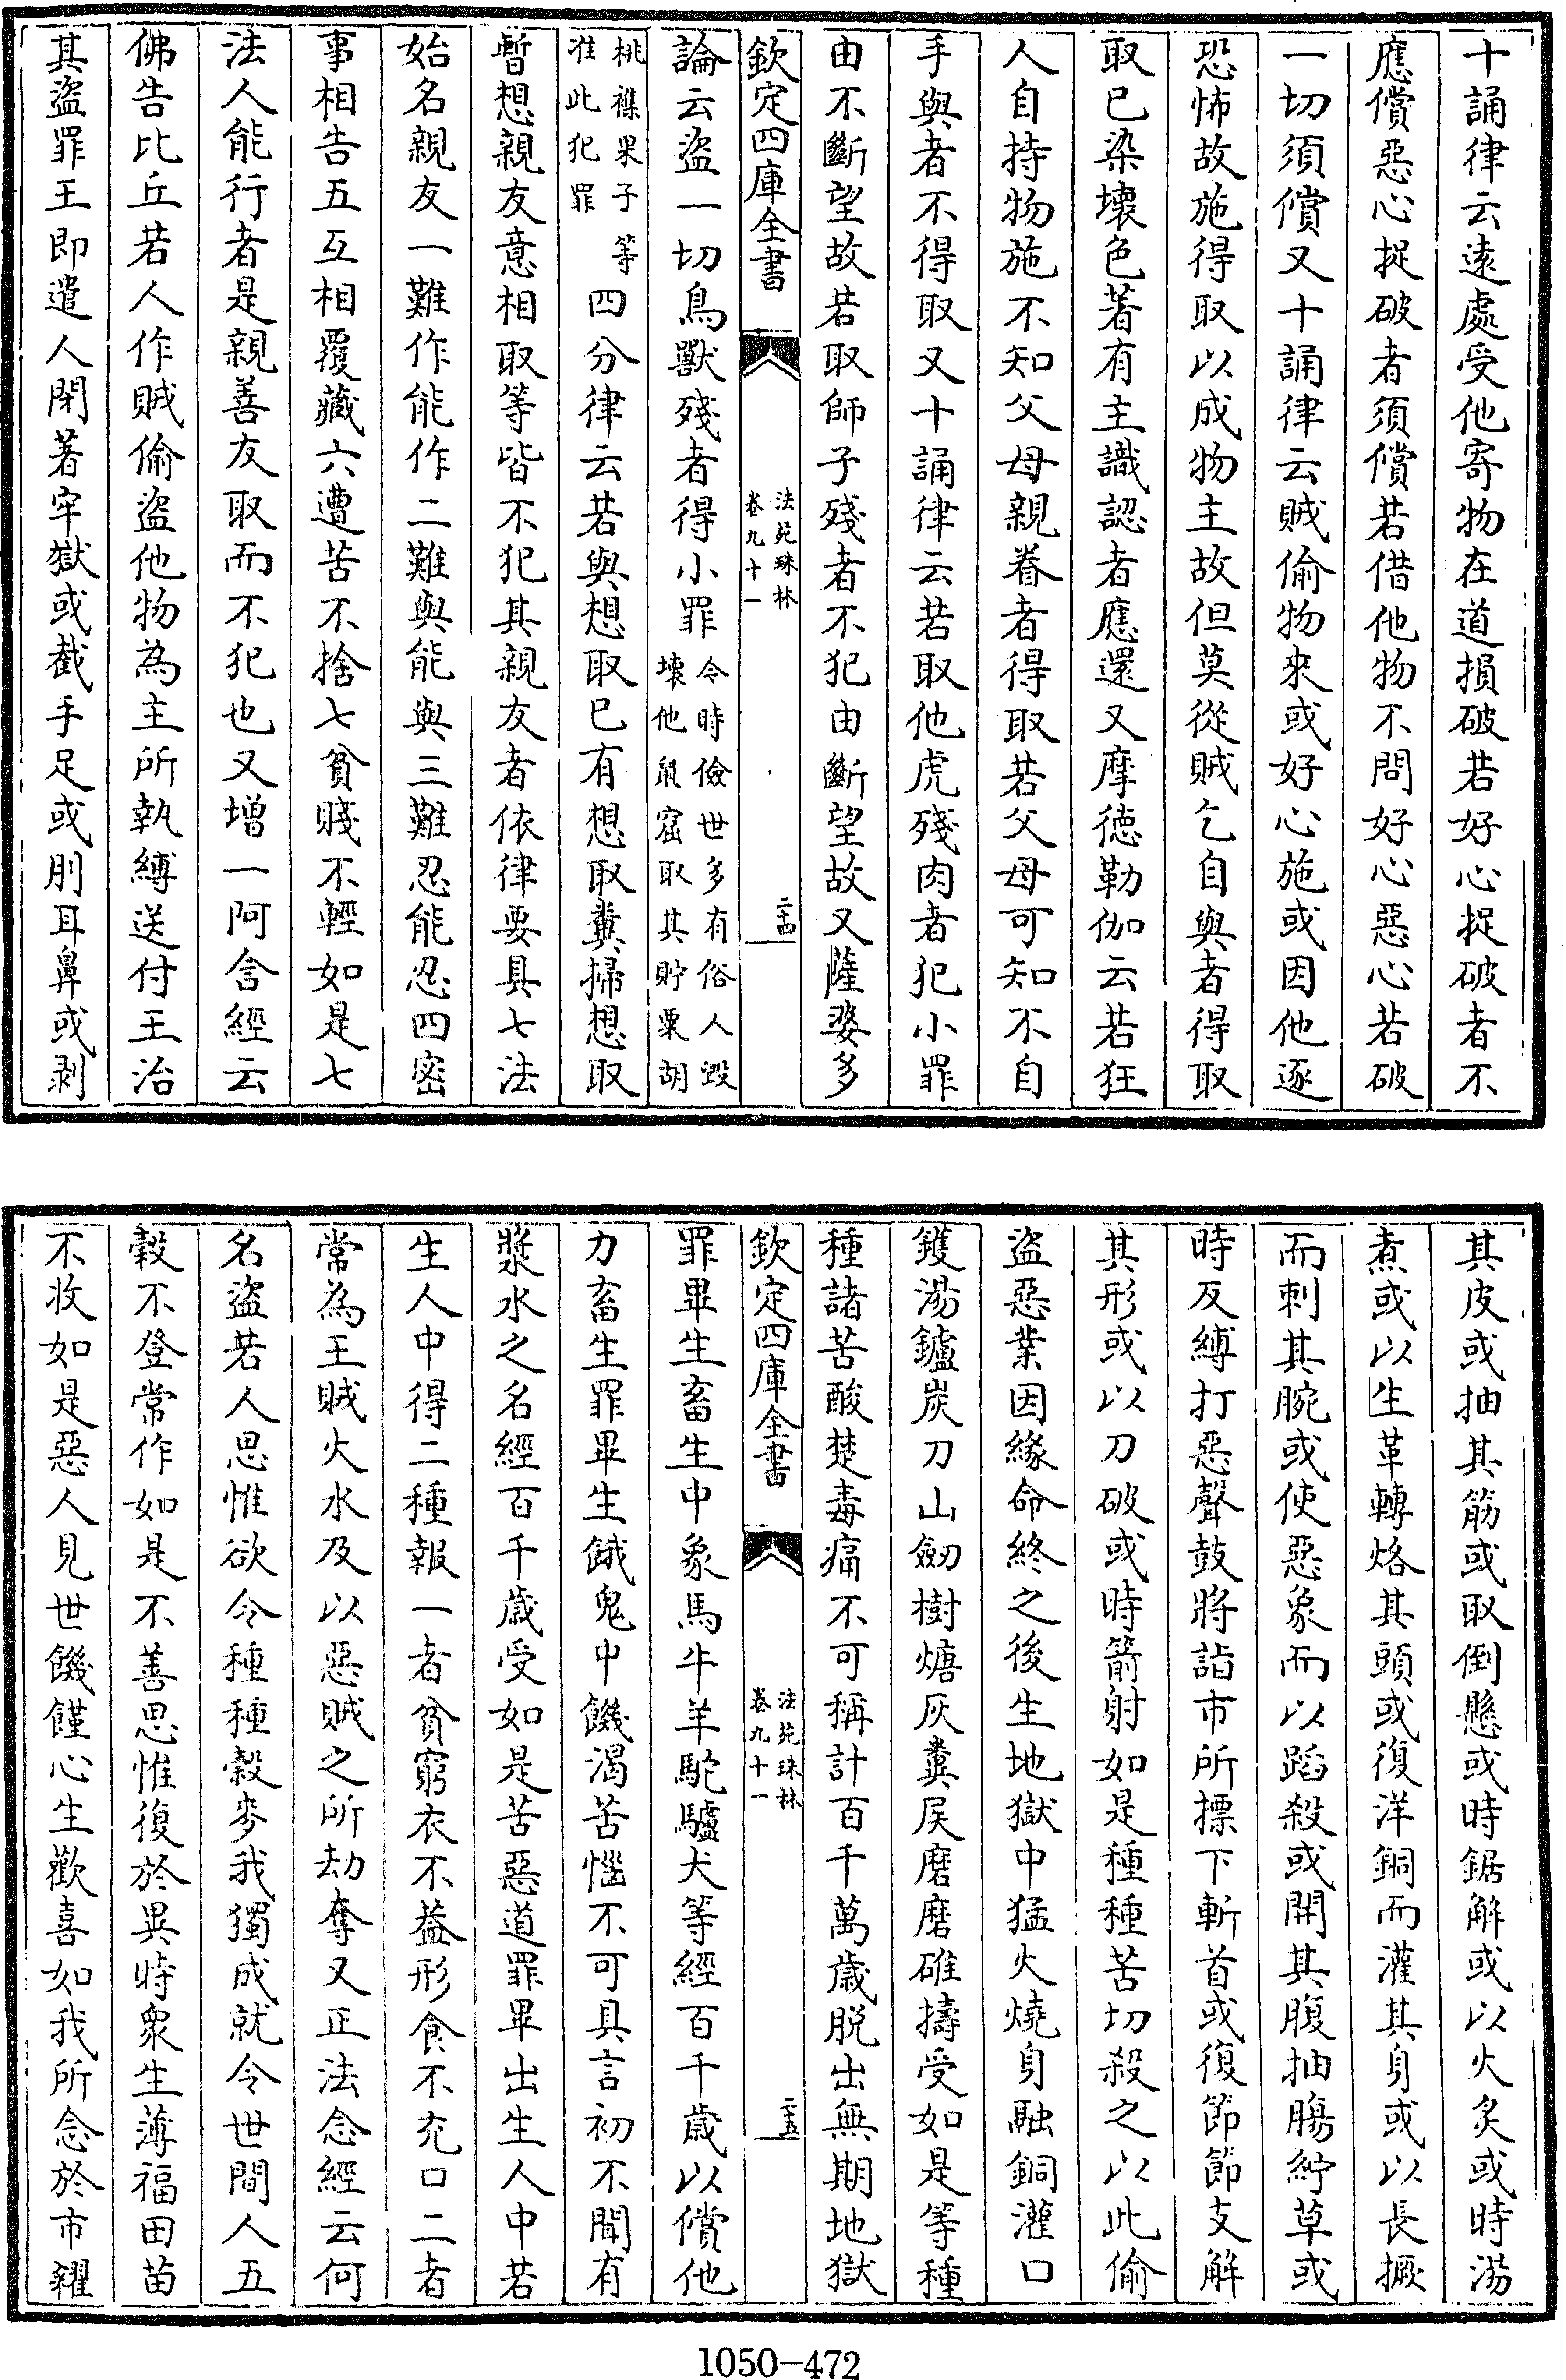 十誦律云遠處受他寄物在道損破若好心捉破者不
應償惡心捉破者須償若借他物不問好心惡心若破
一切須償又十誦律云賊偷物來或好心施或因他逐
恐怖故施得取以成物主故但莫從賊乞自與者得取
取已染壞色著有主識認者應還又摩德勒伽云若狂
人自持物施不知父母親眷者得取若父母可知不自
手與者不得取又十誦律云若取他虎殘肉者犯小罪
由不斷望故若取師子殘者不犯由斷望故又薩婆多
欽定四庫全書
法苑珠林
卷九十一
二十四
論云盜一切鳥獸殘者得小罪
今時儉世多有俗人毀
壞他鼠窟取其貯粟胡
桃襍果子等
准此犯罪
四分律云若與想取已有想取糞掃想取
暫想親友意相取等皆不犯其親友者依律要具七法
始名親友一難作能作二難與能與三難忍能忍四密
事相告五互相覆藏六遭苦不捨七貧賤不輕如是七
法人能行者是親善友取而不犯也又增一阿含經云
佛告比丘若人作賊偷盜他物為主所執縛送付王治
其盜罪王即遣人閉著牢獄或截手足或刖耳鼻或剥
其皮或抽其筋或取倒懸或時鋸解或以火炙或時湯
煮或以生革轉烙其頭或復洋銅而灌其身或以長橛
而刺其腕或使惡象而以蹈殺或開其腹抽腸紵草或
時反縛打惡聲鼓將詣市所摽下斬首或復節節支解
其形或以刀破或時箭射如是種種苦切殺之以此偷
盜惡業因緣命終之後生地獄中猛火燒身融銅灌口
鑊湯鑪炭刀山劒樹煻灰糞屎磨磨碓擣受如是等種
種諸苦酸楚毒痛不可稱計百千萬歲脱出無期地獄
欽定四庫全書
法苑珠林
卷九十一
二十五
罪畢生畜生中象馬牛羊駝驢犬等經百千歲以償他
力畜生罪畢生餓鬼中饑渴苦惱不可具言初不聞有
漿水之名經百千歲受如是苦惡道罪畢出生人中若
生人中得二種報一者貧窮衣不葢形食不充口二者
常為王賊火水及以惡賊之所劫奪又正法念經云何
名盜若人思惟欲令種種穀麥我獨成就令世間人五
穀不登常作如是不善思惟復於異時衆生薄福田苗
不收如是惡人見世饑饉心生歡喜如我所念於市糴
1050-472